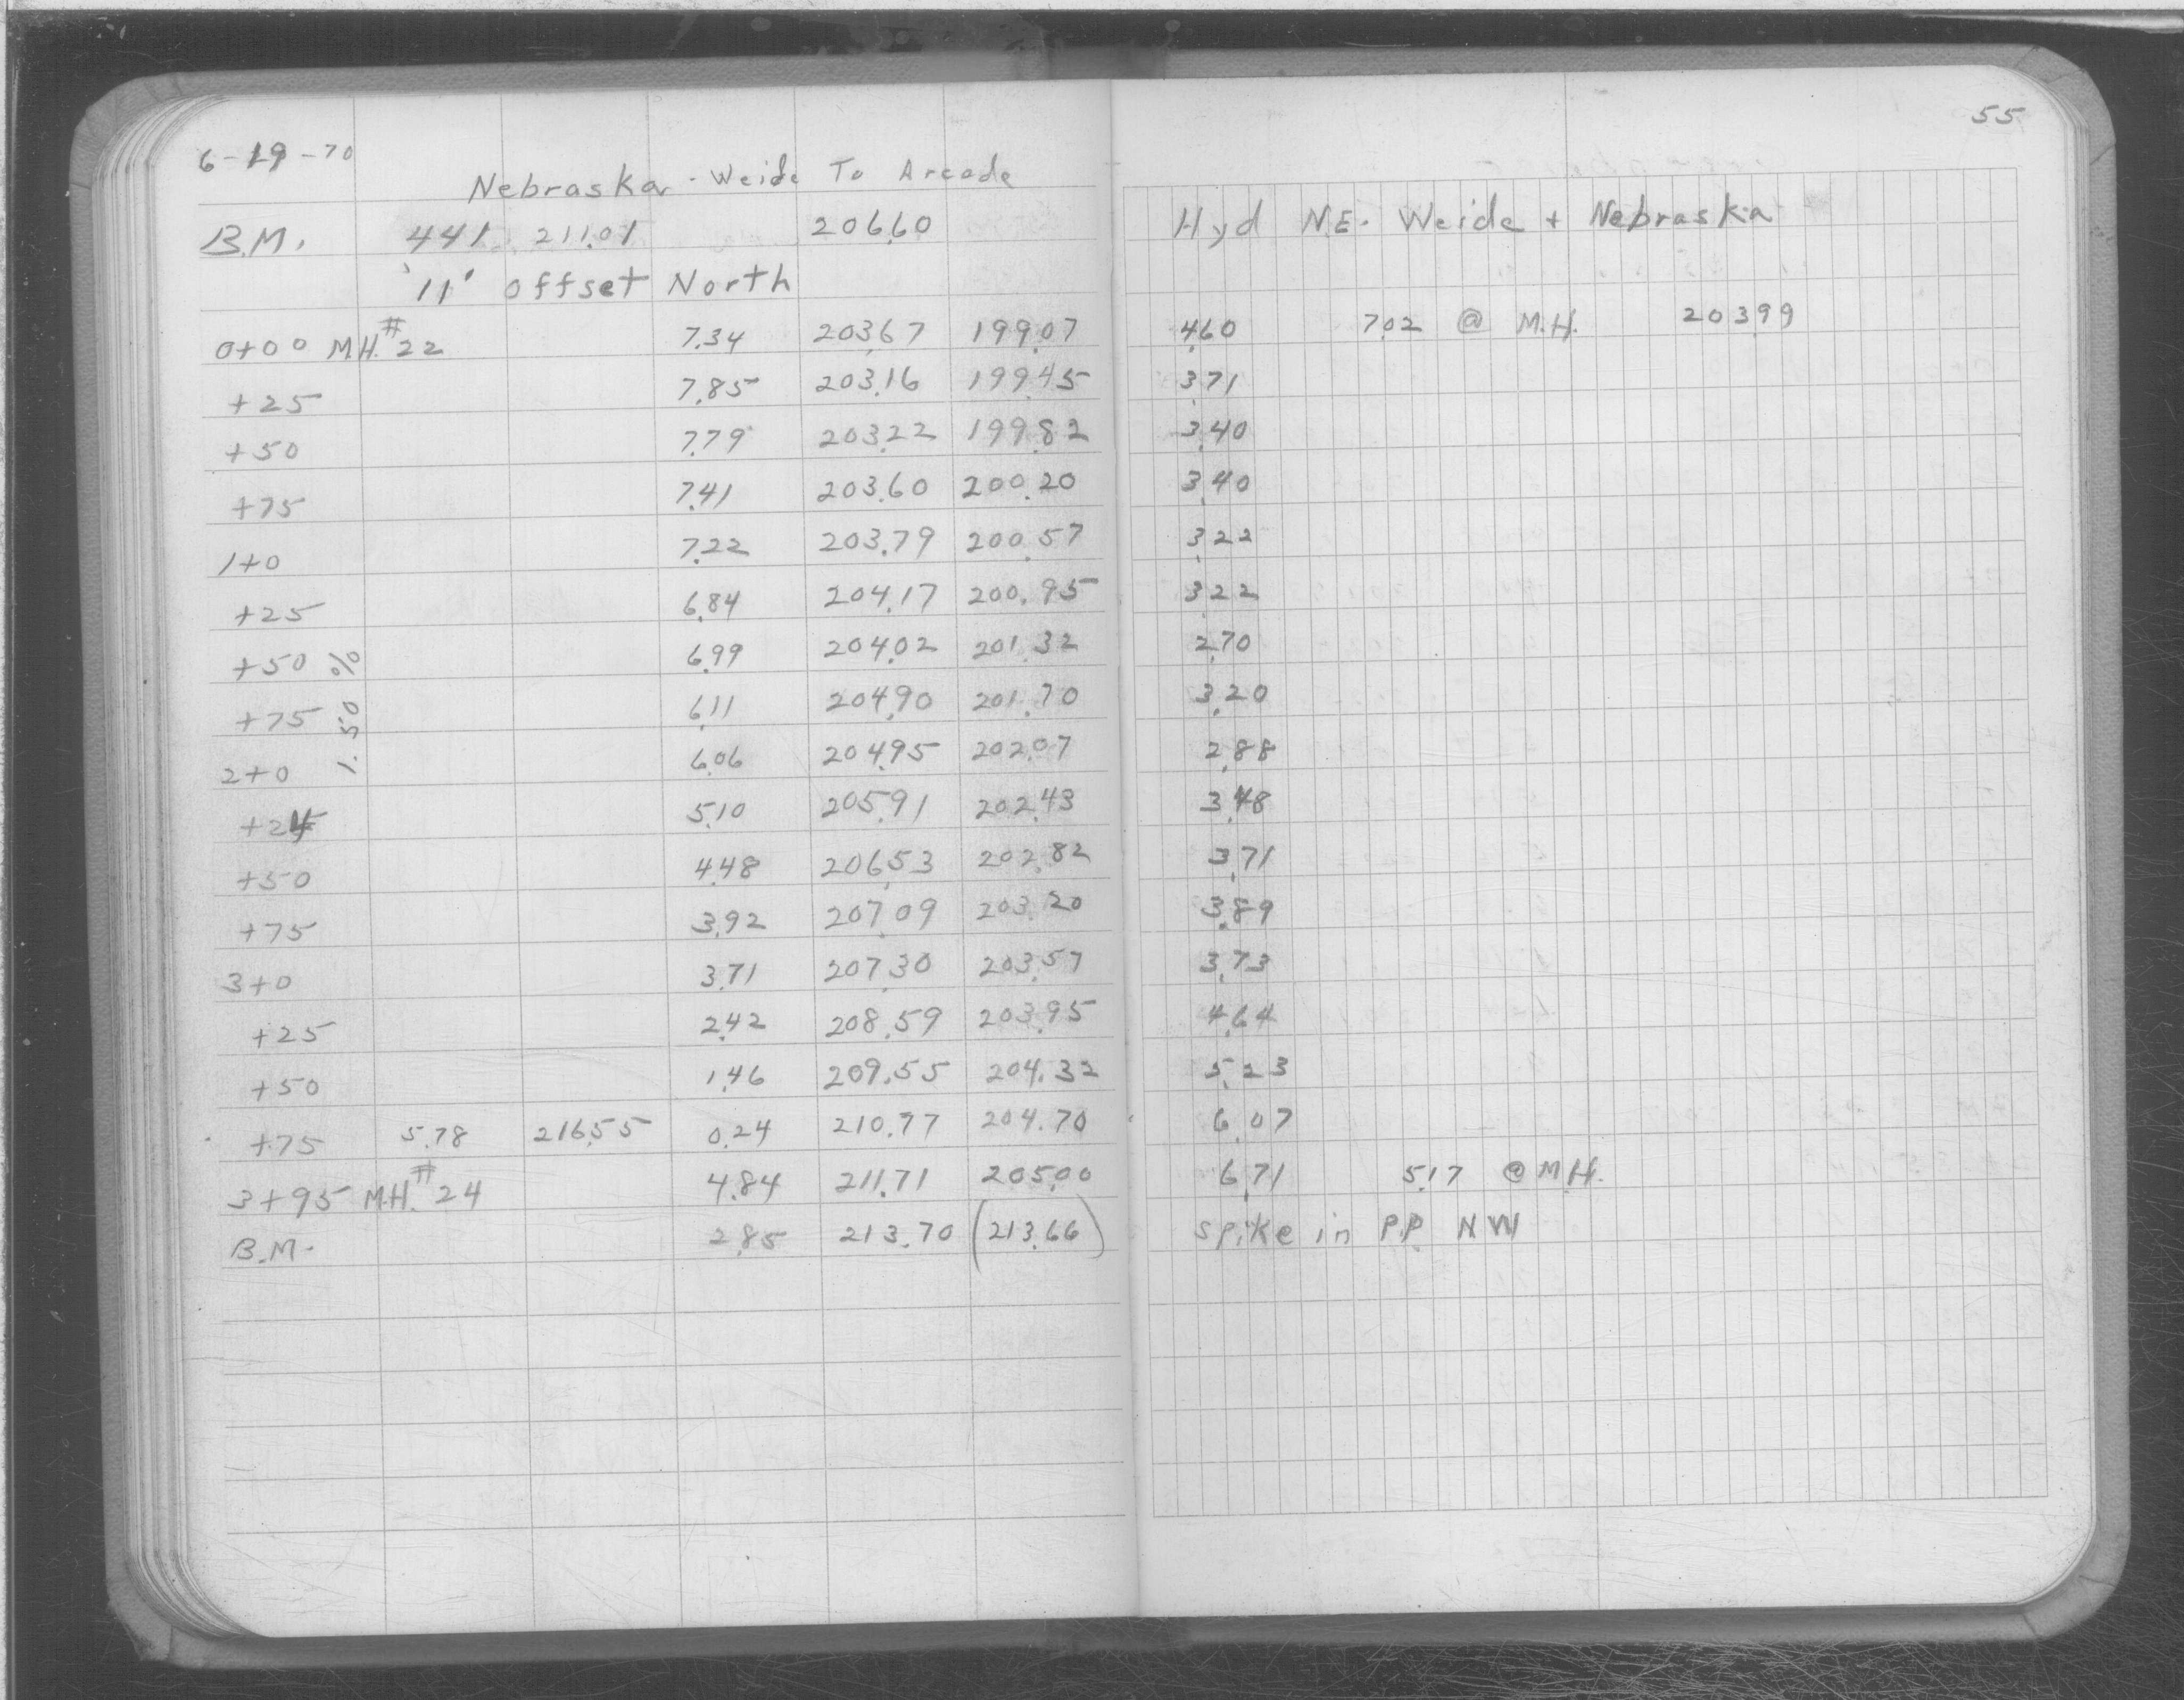 55
6-19-70
Nebraska - Weide To Arcade
B.M. 4.41 211.01 206.60 Hyd N.E. Weide + Nebraska
11' offset North
0+00 M.H.#22 7.34 203.67 199.07 4.60 7.02 @ M.H. 203.99
+25 7.85 203.16 199.45 3.71
+50 7.79 203.22 199.82 3.40
+75 7.41 203.60 200.20 3.40
1+0 7.22 203.79 200.57 3.22
+25 6.84 204.17 200.95 3.22
+50 6.99 204.02 201.32 2.70
+75 6.11 204.90 201.70 3.20
1.50 %
2+0 6.06 204.95 202.07 2.88
+24 5.10 205.91 202.43 3.48
+50 4.48 206.53 202.82 3.71
+75 3.92 207.09 203.20 3.89
3+0 3.71 207.30 203.57 3.73
+25 2.42 208.59 203.95 4.64
+50 1.46 209.55 204.32 5.23
+75 5.78 216.55 0.24 210.77 204.70 6.07
3+95 M.H.#24 4.84 211.71 205.00 6.71 5.17 @ M.H.
B.M. 2.85 213.70 (213.66) Spike in P.P NW